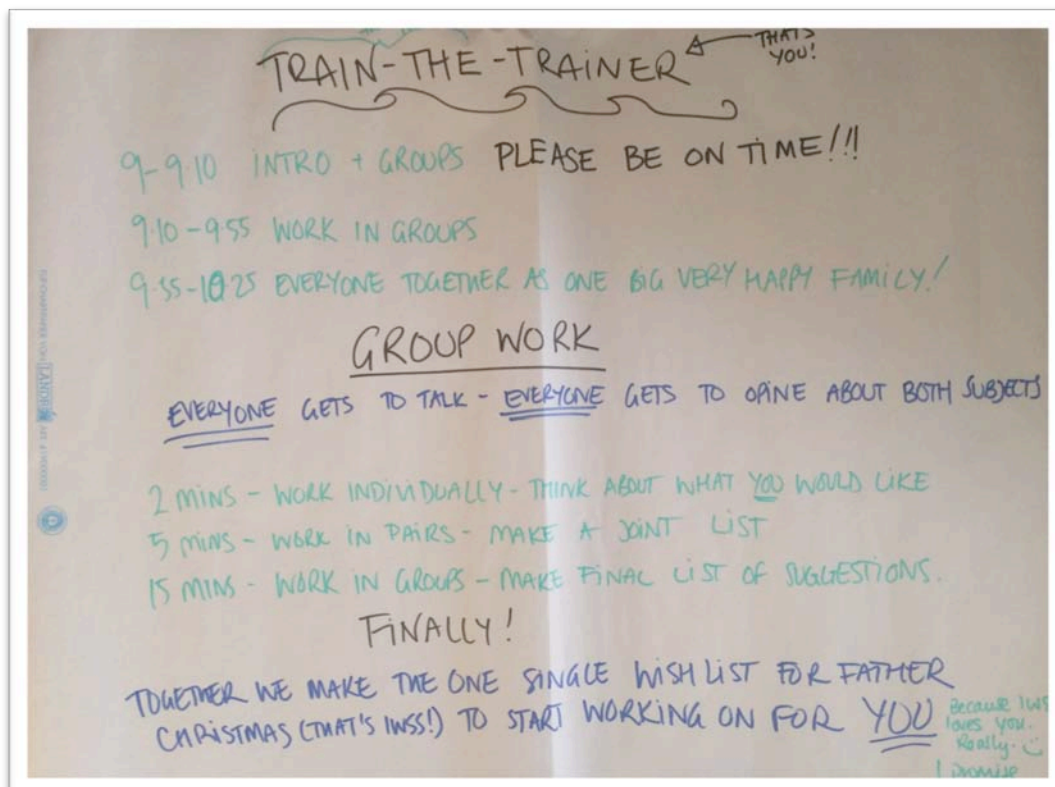 THAT'S
YOU!
TRAIN-THE-TRAINER
9-9.10 INTRO + GROUPS PLEASE BE ON TIME!!!
9.10-9.55 WORK IN GROUPS
9.55-10.25 EVERYONE TOGETHER AS ONE BIG VERY HAPPY FAMILY!
GROUP WORK
EVERYONE GETS TO TALK - EVERYONE GETS TO OPINE ABOUT BOTH SUBJECTS
2 MINS - WORK INDIVIDUALLY - THINK ABOUT WHAT YOU WOULD LIKE
5 MINS - WORK IN PAIRS - MAKE A JOINT LIST
15 MINS - WORK IN GROUPS - MAKE FINAL LIST OF SUGGESTIONS.
FINALLY!
TOGETHER WE MAKE THE ONE SINGLE WISH LIST FOR FATHER
CHRISTMAS (THAT'S IWSS!) TO START WORKING ON FOR YOU
Because
loves you.
Really.
I promise